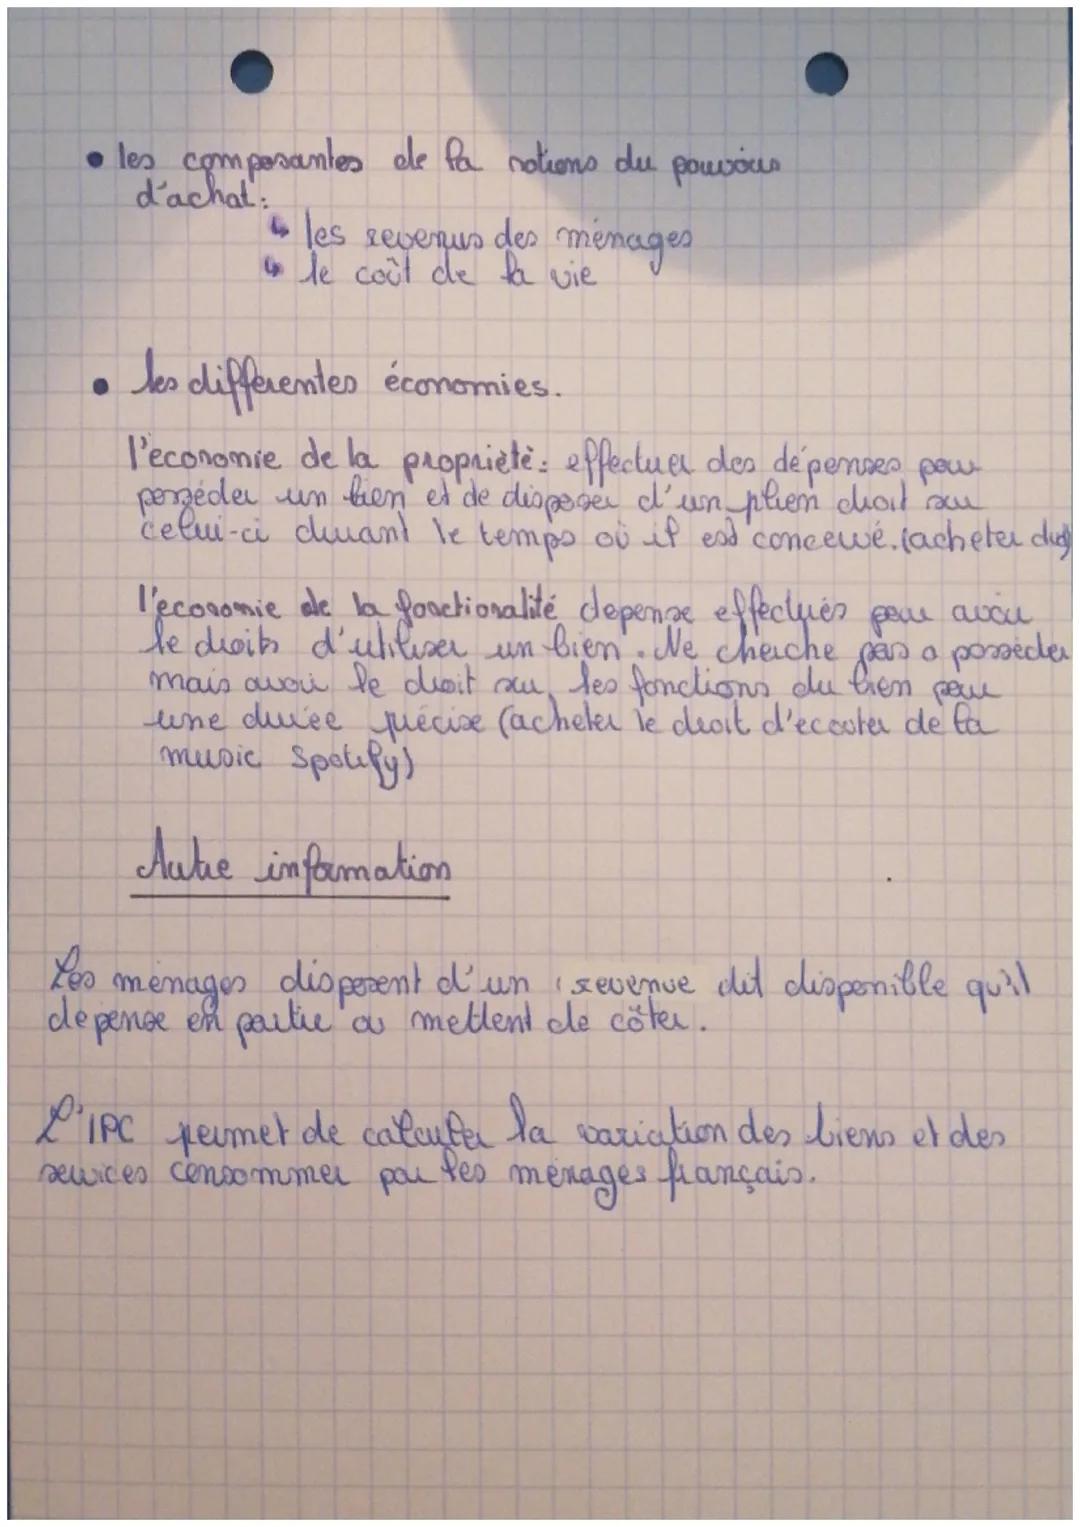 • les composantes de la notions du pouvoirs
d'achat:
↳ les revenus des ménages
↳ le coût de la vie
• les differentes économies.
l'economie de la propriété: effectuer des dépenses pour
posséder un bien et de disposer d'un plien droit sur
celui-ci durant le temps où il est concervé. (acheter
l'economie de la fonctionalité depense effectués pour avoir
le droits d'utiliser un bien. Ne cherche pas a posséder
mais avoir le droit sur les fonctions du bien pour
une durée précise (acheter le droit d'ecouter de la
music Spotify)
Autre information
Les ménages disposent d'un revenue dit disponible qu'il
dépense en partie ou mettent de côter.
L'IPC permet de calculer la variation des biens et des
services consommer par les ménages français.